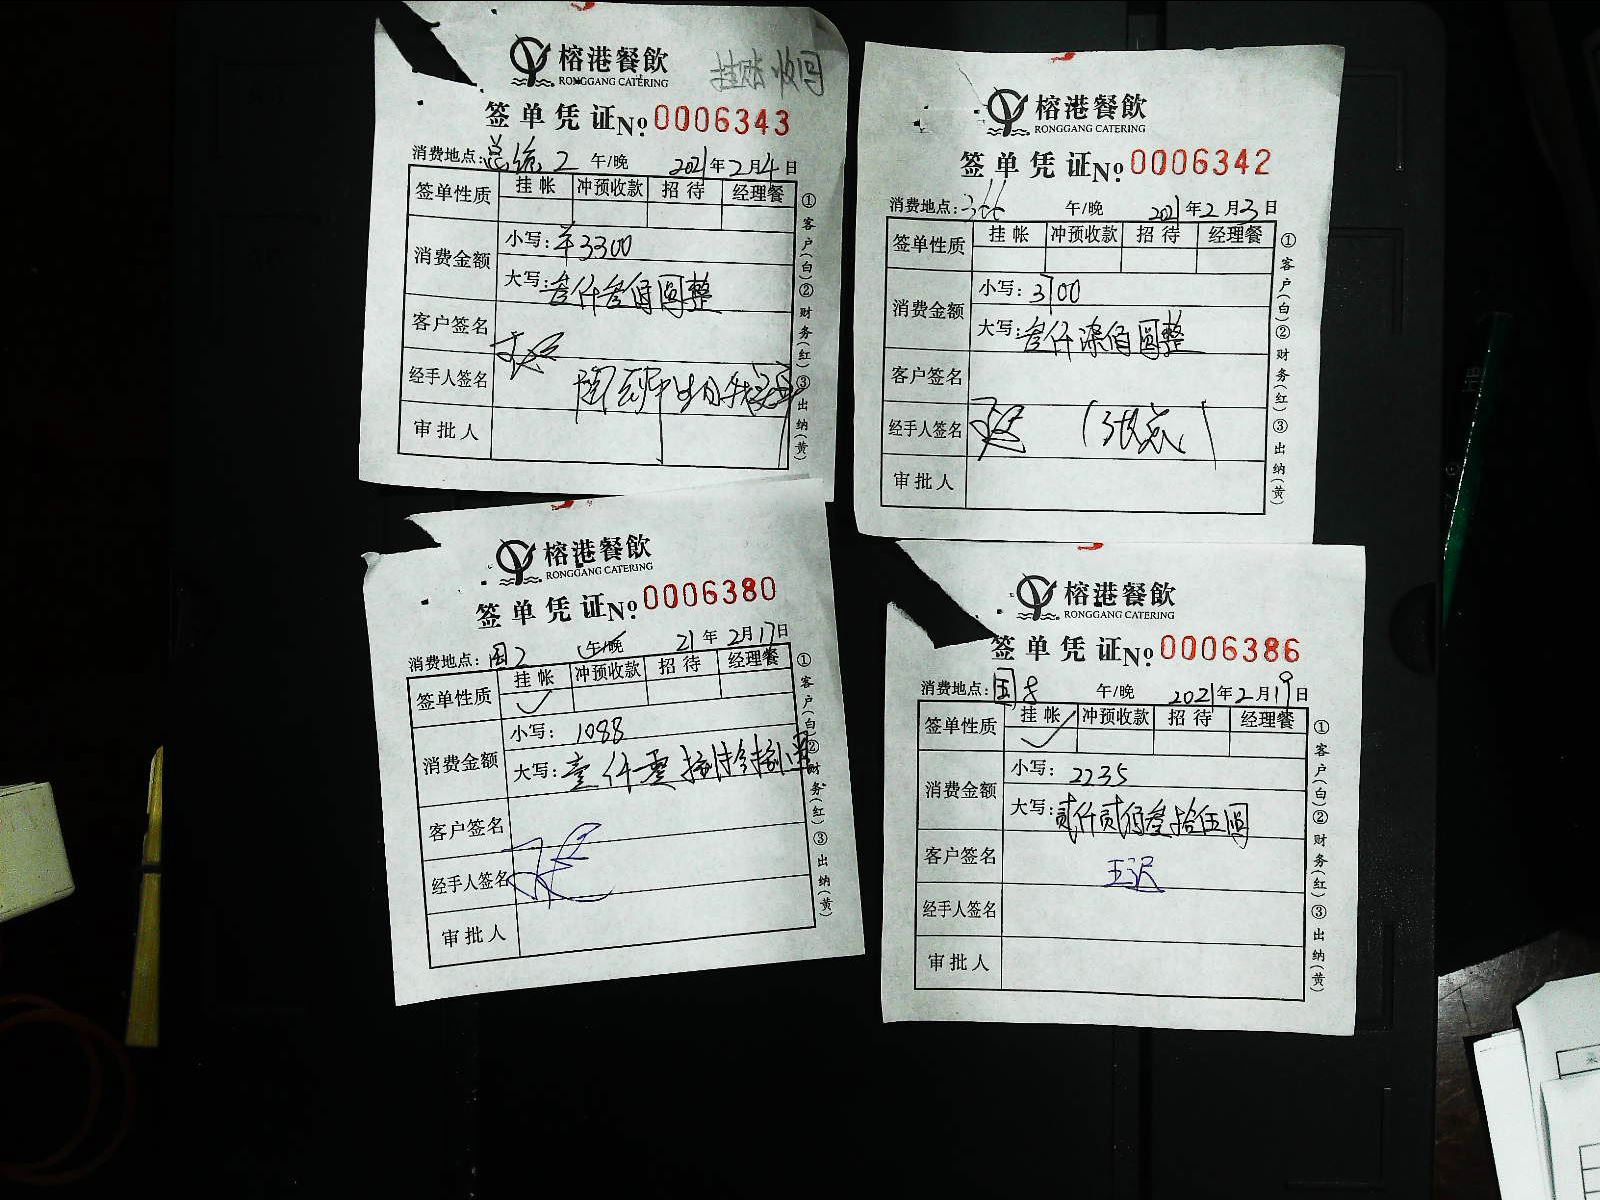 榕港餐飲
RONGGANG CATERING
挂账收回
签单凭证No.0006343
消费地点:总统2 午/晚 2021年2月4日
签单性质 挂帐 冲预收款 招待 经理餐
消费金额
小写:羊3300
大写:叁仟叁佰圆整
客户签名
经手人签名
审批人
①客户(白)②财务(红)③出纳(黄)
榕港餐飲
RONGGANG CATERING
签单凭证No.0006342
消费地点:366 午/晚 2021年2月3日
签单性质 挂帐 冲预收款 招待 经理餐
消费金额
小写:3700
大写:叁仟柒佰圆整
客户签名
经手人签名
审批人
①客户(白)②财务(红)③出纳(黄)
榕港餐飲
RONGGANG CATERING
签单凭证No.0006380
消费地点:国2 午/晚 21年2月17日
签单性质 挂帐 冲预收款 招待 经理餐
消费金额
小写:1088
大写:壹仟零捌拾捌圆
客户签名
经手人签名
审批人
①客户(白)②财务(红)③出纳(黄)
榕港餐飲
RONGGANG CATERING
签单凭证No.0006386
消费地点:国8 午/晚 2021年2月19日
签单性质 挂帐 冲预收款 招待 经理餐
消费金额
小写:2235
大写:贰仟贰佰叁拾伍圆
客户签名 王沢
经手人签名
审批人
①客户(白)②财务(红)③出纳(黄)